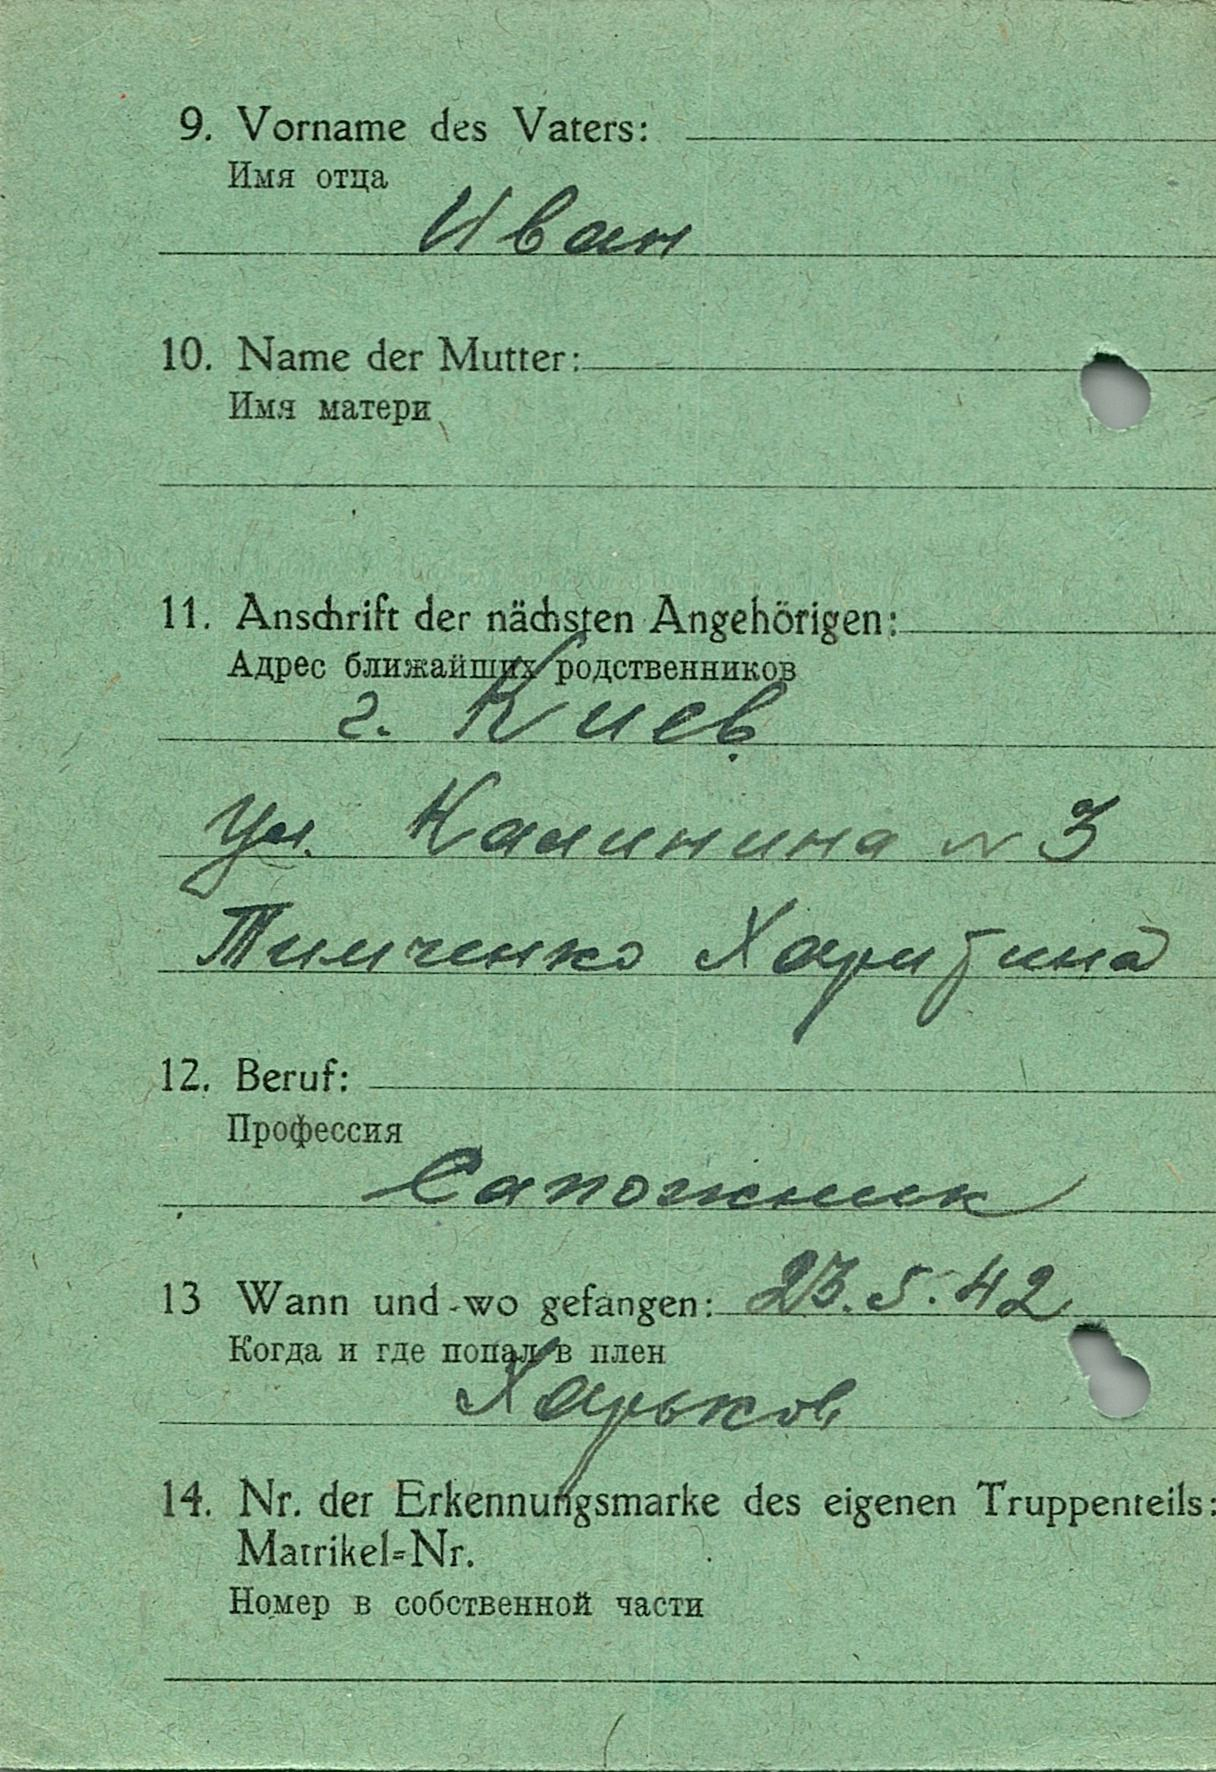 9. Vorname des Vaters:
Имя отца
Иван
10. Name der Mutter:
Имя матери
11. Anschrift der nächsten Angehörigen:
Адрес ближайших родственников
г. Киев
ул. Калинина N 3
Тимченко Харитина
12. Beruf:
Профессия
Сапожник
13 Wann und wo gefangen: 23.5.42
Когда и где попал в плен
Харьков
14. Nr. der Erkennungsmarke des eigenen Truppenteils:
Matrikel=Nr.
Номер в собственной части